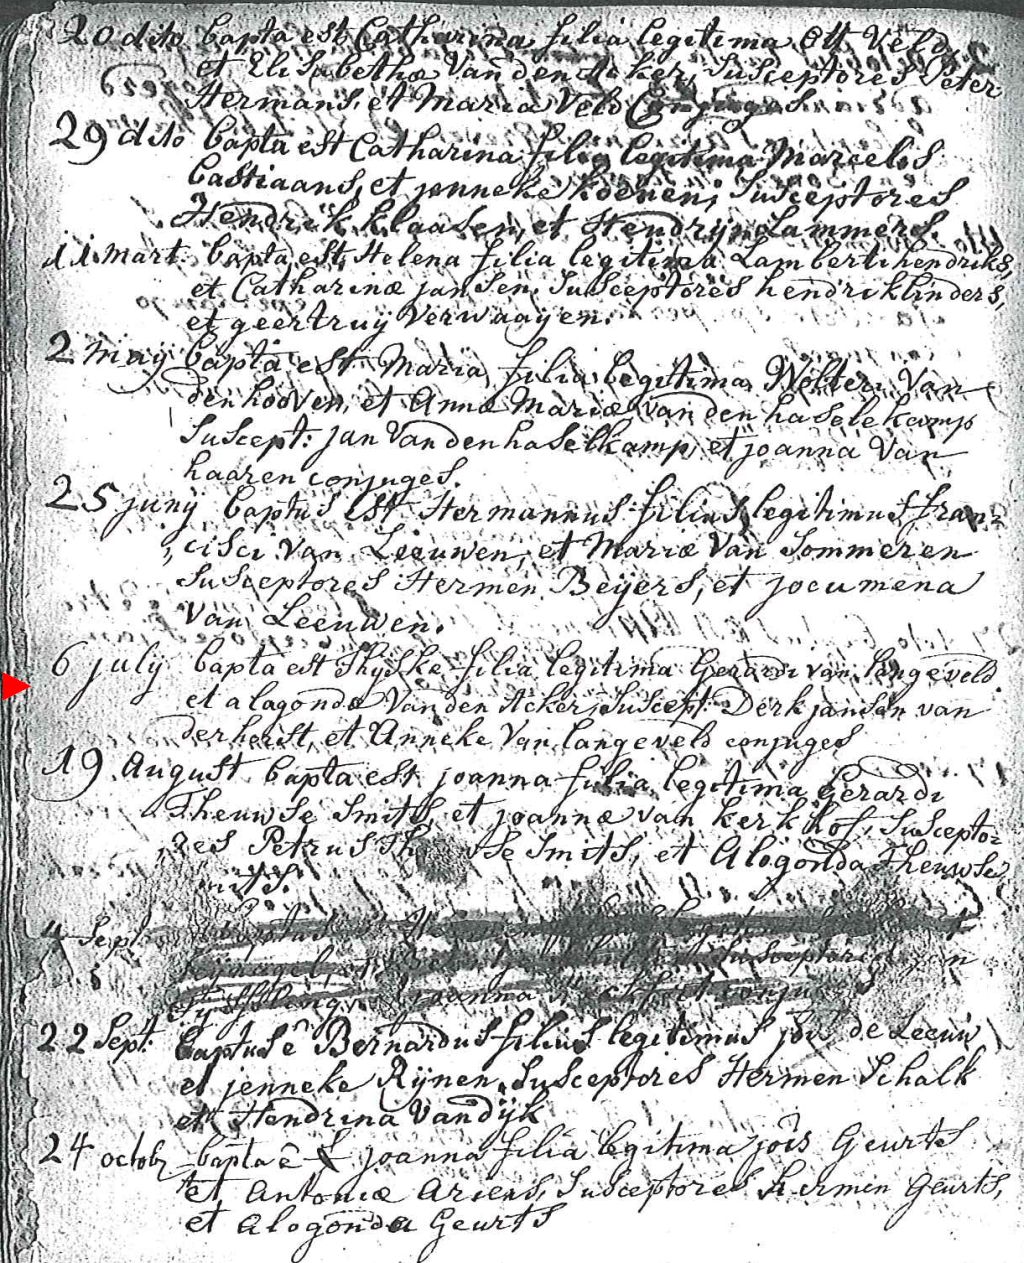 20 dito bapta est Catharina filia legitima Ott Veld
et Elisabethæ Van den Acker, Susceptores Peter
Hermans, et Maria Veld Conjuges
29 dito bapta est Catharina filia legitima Marcelis
bastiaans, et jenneke koenen, Susceptores
Hendrik Klaasen, et Hendrijn Lammers.
11 mart. bapta est Helena filia legitima Lamberti hendriks,
et Catharinæ jansen, Susceptores hendrik linders,
et geertruij Verwaayen.
2 maij bapta est Maria filia legitima Wolteri Van
den hooven, et Annæ Mariæ van den haselekamp
Suscept: jan Van den haselkamp, et joanna Van
haaren conjuges.
25 junij baptus est Hermannus filius legitimus Fran=
cisci Van Leeuwen, et Mariæ Van Sommeren
Susceptores Hermen Beijers, et jocumena
Van Leeuwen.
6 julij bapta est Thijske filia legitima Gerardi van Langeveld
et alagonda Van den Acker, Suscept: Derk jansen van
der horst, et Anneke Van langeveld conjuges
19 August bapta est joanna filia legitima Gerardi
Theuwse Smits, et joannæ van kerkhof, Suscepto=
res Petrus Th se Smits, et Alogonda Theuwse
mits.
4 Sept. Susceptores
joanna
22 Sept. baptus ê Bernardus filius legitimus jois de Leeuw
et jenneke Rijnen, Susceptores Hermen Schalk
et Hendrina Van Dijk
24 octobr bapta ê joanna filia legitima jois Geurts
et Antoniæ Ariens, Susceptores hermen Geurts,
et Alogonda Geurts